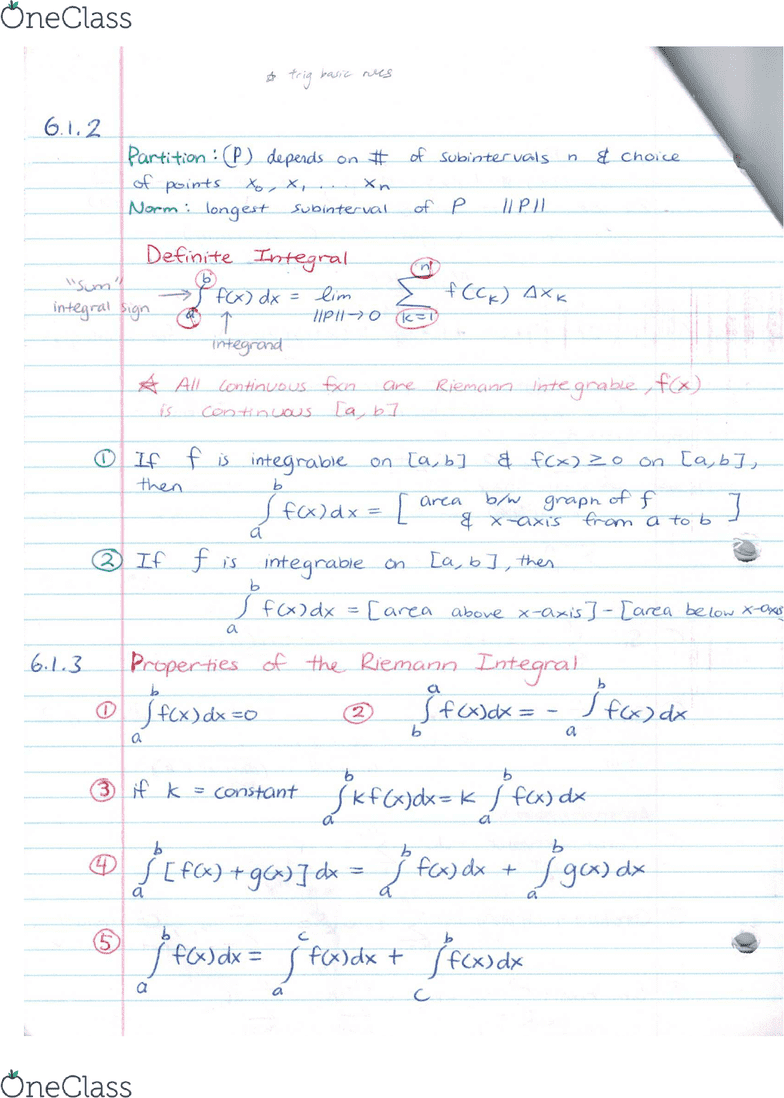 OneClass
☆ trig basic rules
6.1.2
Partition: (P) depends on # of subintervals n & choice
of points x₀, x₁ .... xₙ
Norm: longest subinterval of P ||P||
Definite Integral
"sum" integral sign → ∫ₐᵇ f(x) dx = lim_{||P||→0} Σ_{k=1}^{n} f(cₖ) Δxₖ
↑
integrand
☆ All continuous fxn are Riemann integrable, f(x)
is continuous [a, b]
① If f is integrable on [a,b] & f(x) ≥ 0 on [a,b],
then
∫ₐᵇ f(x) dx = [area b/w graph of f
& x-axis from a to b]
② If f is integrable on [a,b], then
∫ₐᵇ f(x) dx = [area above x-axis] - [area below x-axis
6.1.3 Properties of the Riemann Integral
① ∫ₐᵇ f(x) dx = 0 ② ∫_b^a f(x) dx = - ∫ₐᵇ f(x) dx
③ if k = constant ∫ₐᵇ k f(x) dx = k ∫ₐᵇ f(x) dx
④ ∫ₐᵇ [f(x) + g(x)] dx = ∫ₐᵇ f(x) dx + ∫ₐᵇ g(x) dx
⑤ ∫ₐᵇ f(x) dx = ∫ₐᶜ f(x) dx + ∫_c^b f(x) dx
OneClass